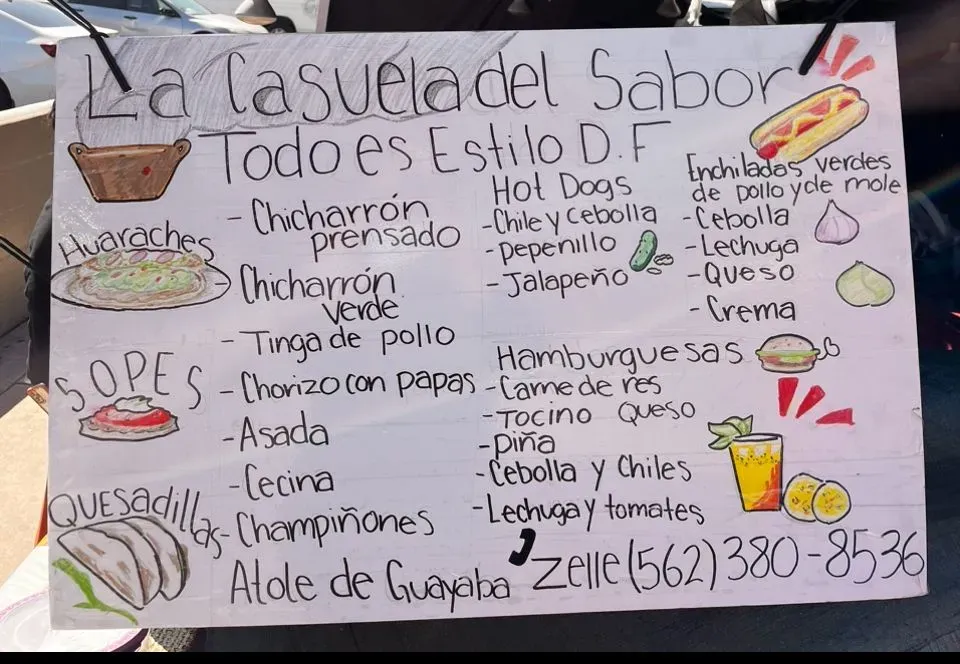 La Casuela del Sabor
Todo es Estilo D.F
Huaraches
SOPES
QUESadillas
- Chicharrón
prensado
- Chicharrón
verde
- Tinga de pollo
- Chorizo con papas
- Asada
- Cecina
- Champiñones
Atole de Guayaba
Hot Dogs
- Chile y cebolla
- pepenillo
- Jalapeño
Enchiladas verdes
de pollo y de mole
- Cebolla
- Lechuga
- Queso
- Crema
Hamburguesas
- Carne de res
- Tocino Queso
- piña
- Cebolla y Chiles
- Lechuga y tomates
Zelle (562) 380-8536